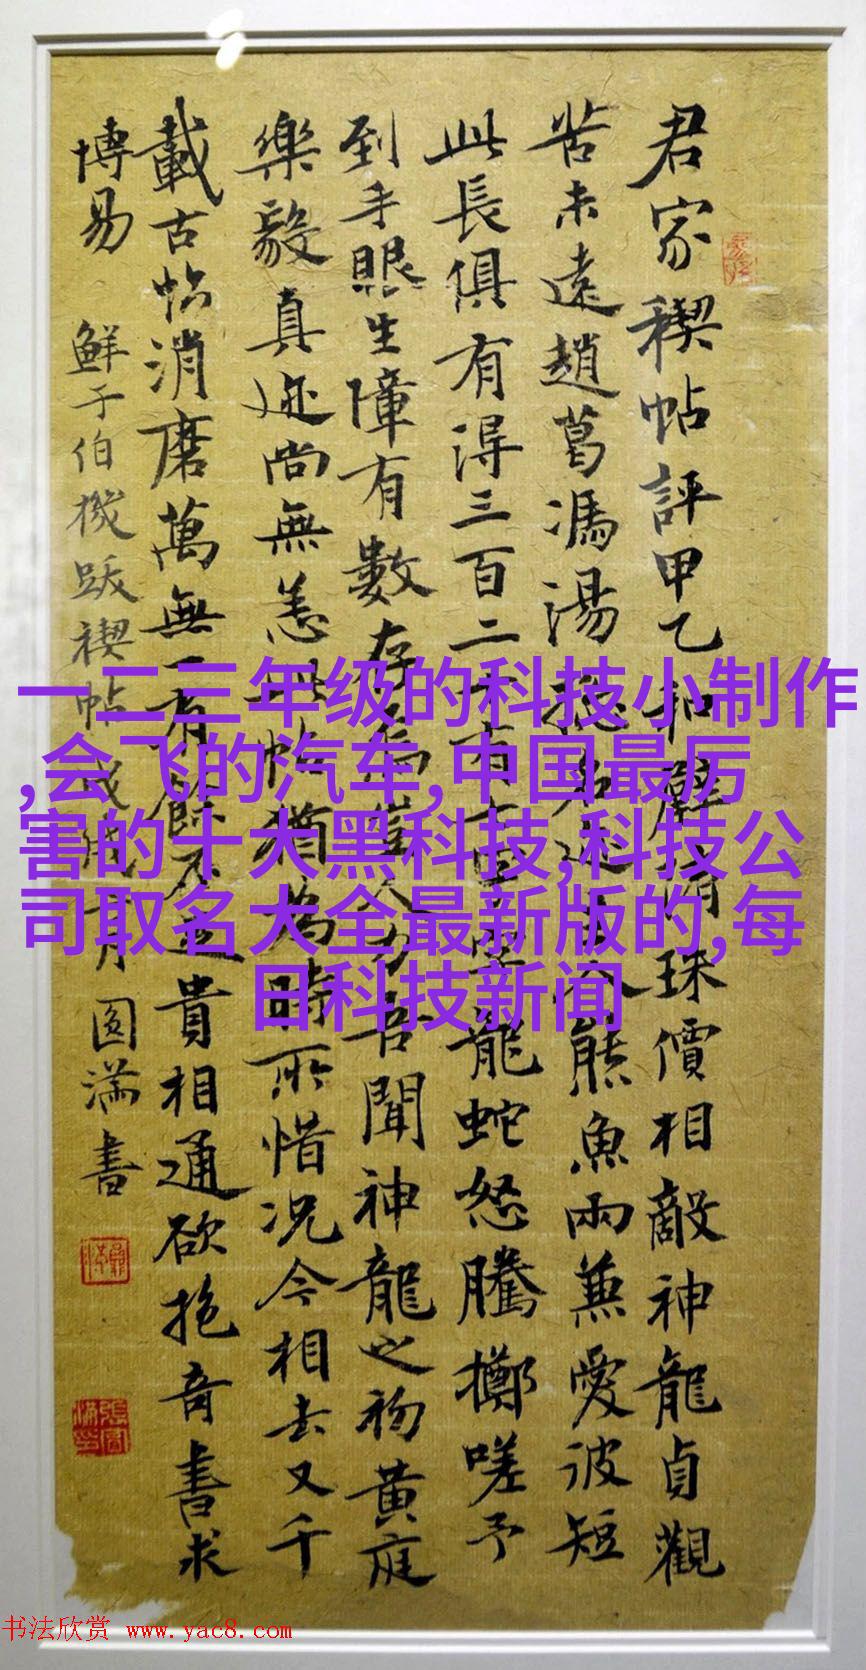 君家稧帖評甲乙和璧隋珠價相敵神龍貞觀
苦未遠趙葛馮湯
此長俱有得三百二十有
龍蛇怒騰擲嗟予
到手眼生障有數存
吾聞神龍之初黃庭
樂毅真迹尚無恙此帖猶為時所惜況今相去又千
載古帖消磨萬無一有餘不足貴相通欲抱奇書求
博易
鮮于伯機跋禊帖
圆滿書
一二三年级的科技小制作
,会飞的汽车,中国最厉
害的十大黑科技,科技公
司取名大全最新版的,每
日科技新闻
书法欣赏 www.yac8.com